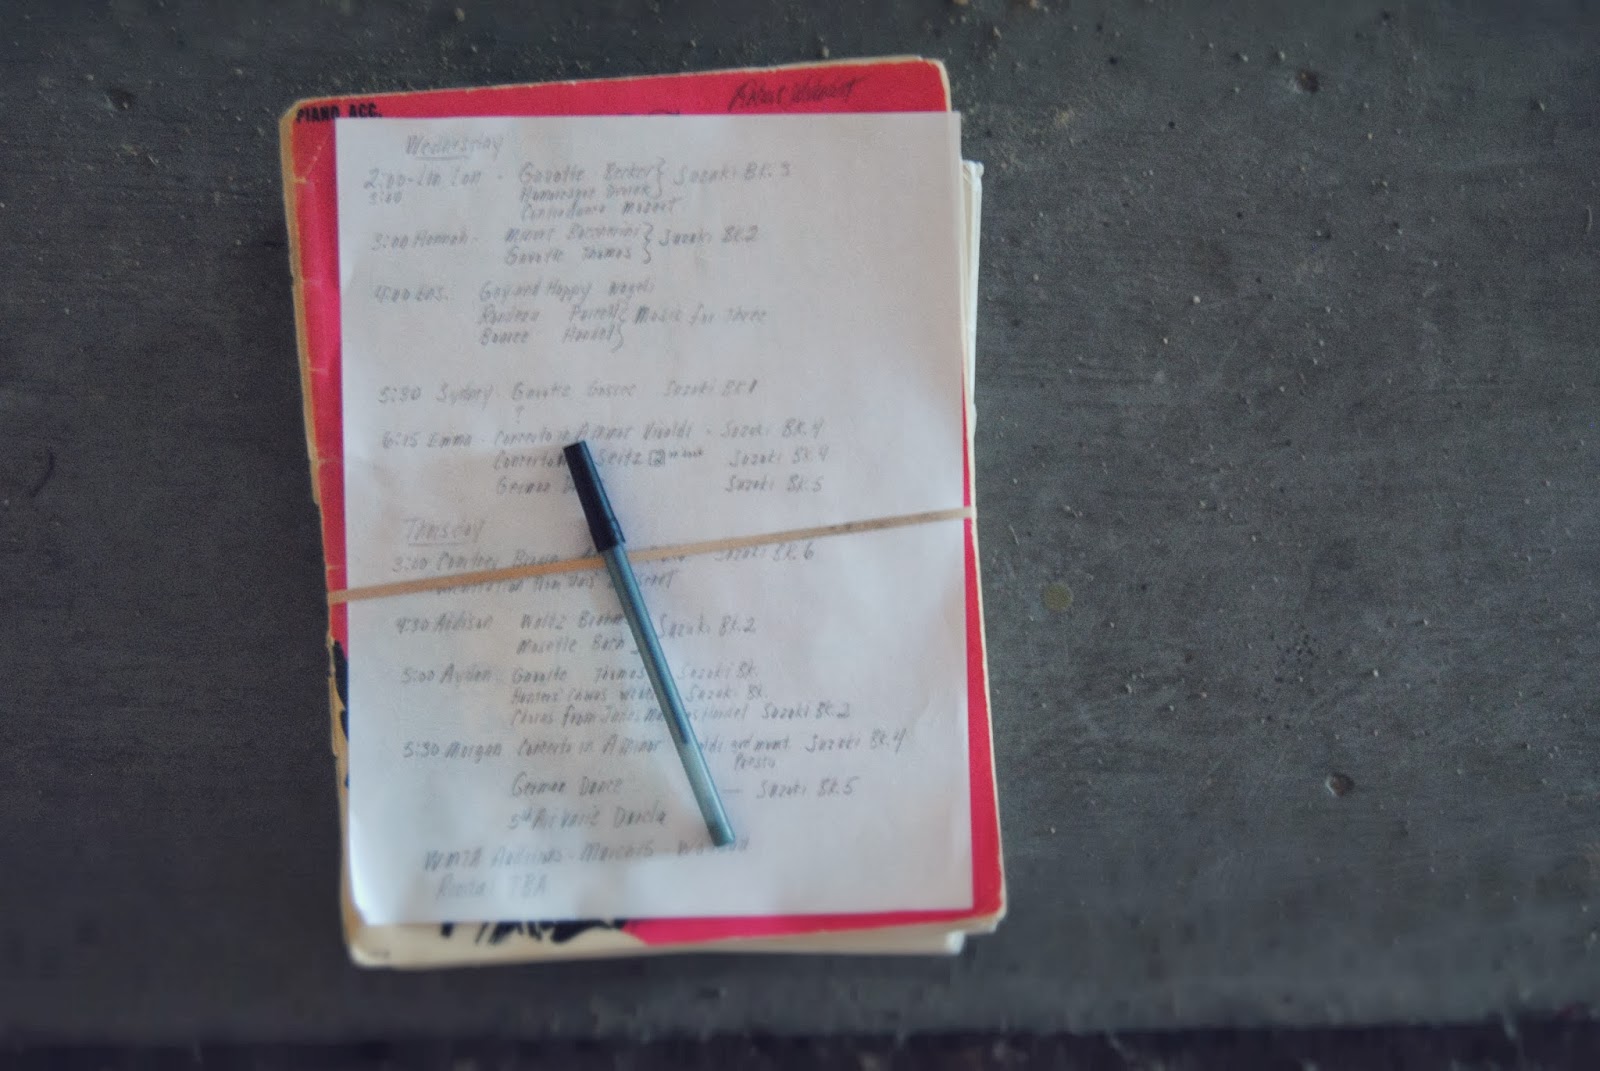 PIANO ACC.
Wednesday
2:00- - Gavotte Becker } Suzuki BK. 3
3:00 Humoresque Dvorak
Contradance Mozart
3:00 Hannah - Minuet Boccherini } Suzuki BK 2
Gavotte Thomas
4:00 Ens. Gay and Happy
Rondeau Purcell } Music for Three
Bouree Handel
5:30 Sydney - Gavotte Gossec Suzuki BK 1
?
6:15 Emma - Concerto in A Minor Vivaldi - Suzuki BK. 4
Seitz Suzuki BK 4
German Suzuki BK. 5
Thursday
3:00 Courtney Suzuki BK. 6
4:30 Addison Waltz Suzuki BK. 2
Musette Bach
5:00 Gavotte Thomas Suzuki BK.
Hunters' Chorus Suzuki BK.
Chorus from Suzuki BK. 2
5:30 Morgan Concerto in A Minor 3rd mvmt. Suzuki BK. 4
Presto
German Dance — Suzuki BK. 5
5th Air Varie Dancla
WMTA Auditions - March 15 -
Recital TBA